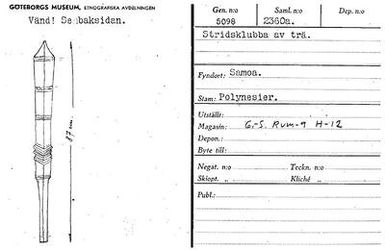 GÖTEBORGS MUSEUM, ETNOGRAFISKA AVDELNINGEN
Vänd! Se baksiden.
87 cm.
Gen. n:o Saml. n:o Dep. n:o
5098 2360a.
Stridsklubba av trä.
Fyndort: Samoa.
Stam: Polynesier.
Utställt:
Magasin: G.-S. Rum-9 H-12
Depon.:
Byte till:
Negat. n:o Teckn. n:o
Skiopt. „ Kliché „
Publ.: